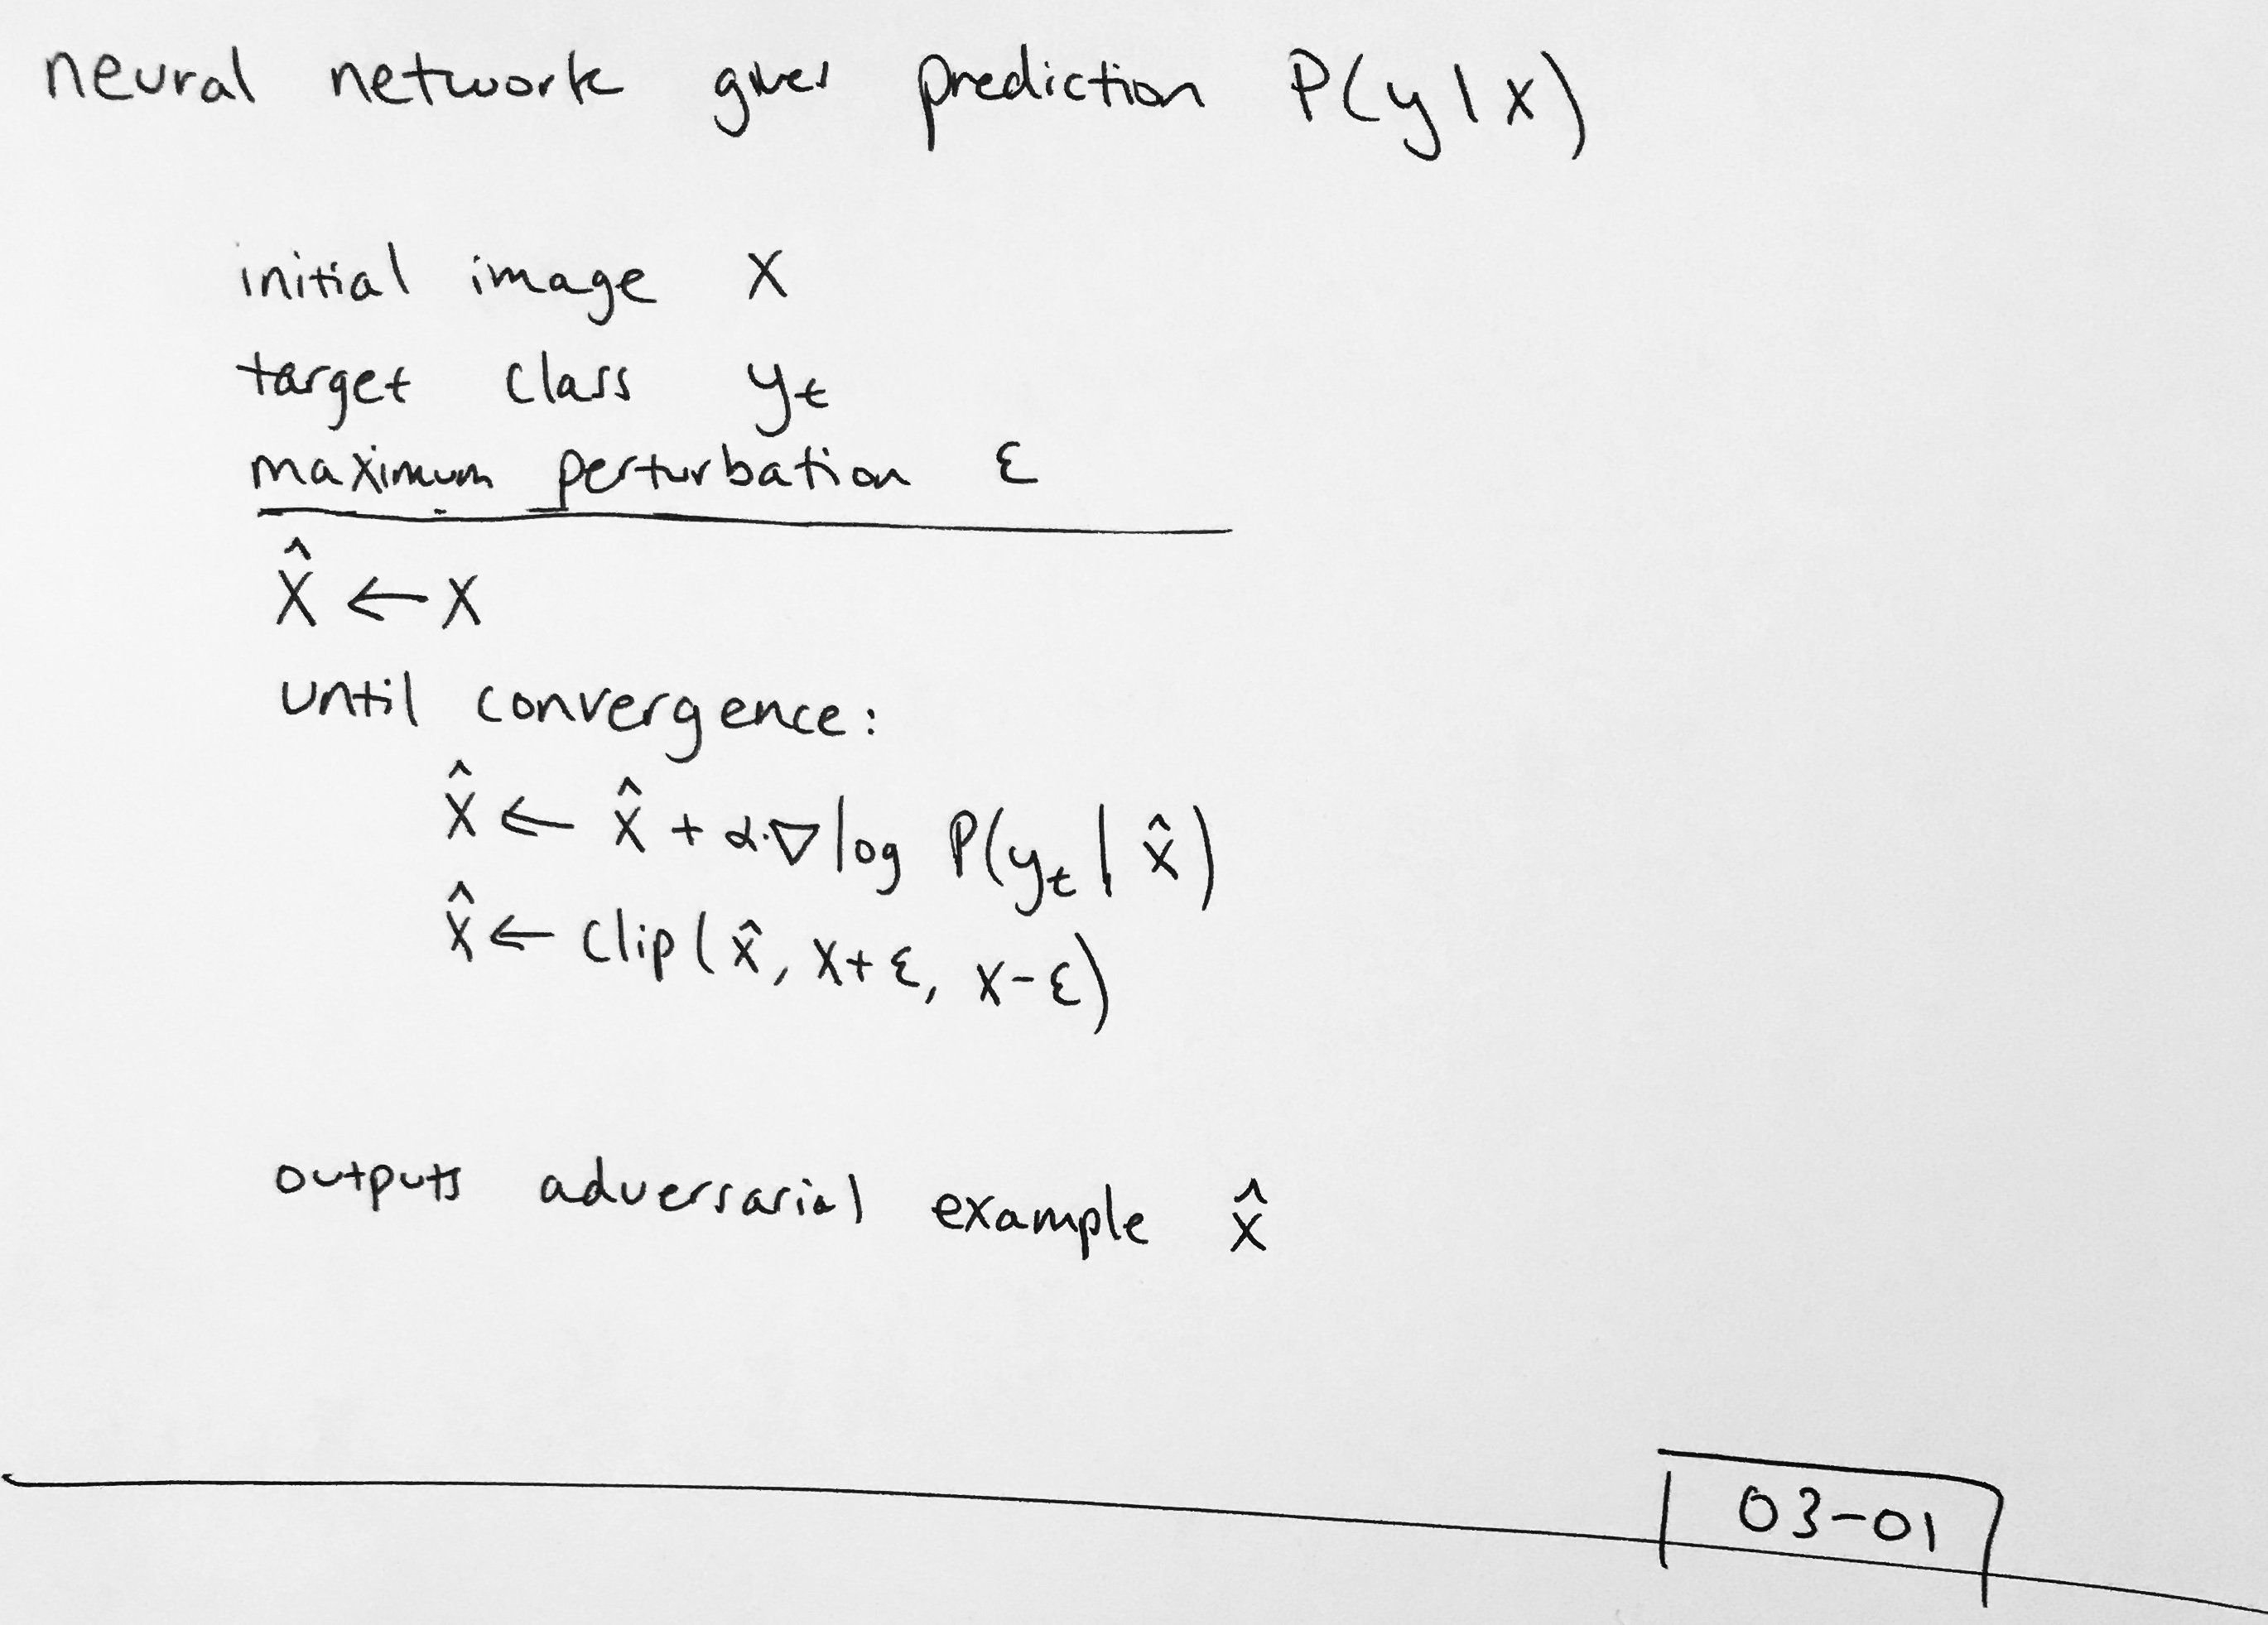 neural network gives prediction P(y|x)
initial image x
target class yₜ
maximum perturbation ε
x̂ ← x
until convergence:
x̂ ← x̂ + α·∇ log P(yₜ | x̂)
x̂ ← clip(x̂, x+ε, x-ε)
outputs adversarial example x̂
03-01